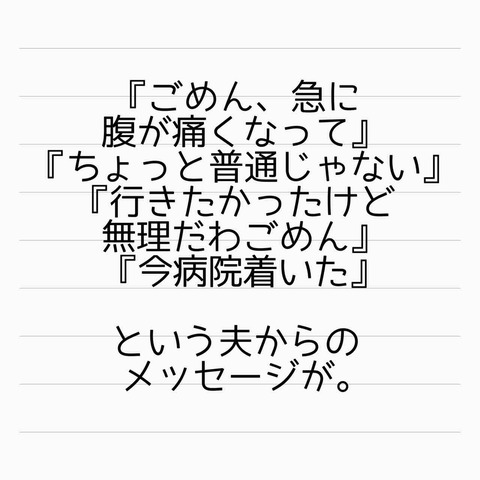 『ごめん、急に
腹が痛くなって』
『ちょっと普通じゃない』
『行きたかったけど
無理だわごめん』
『今病院着いた』
という夫からの
メッセージが。